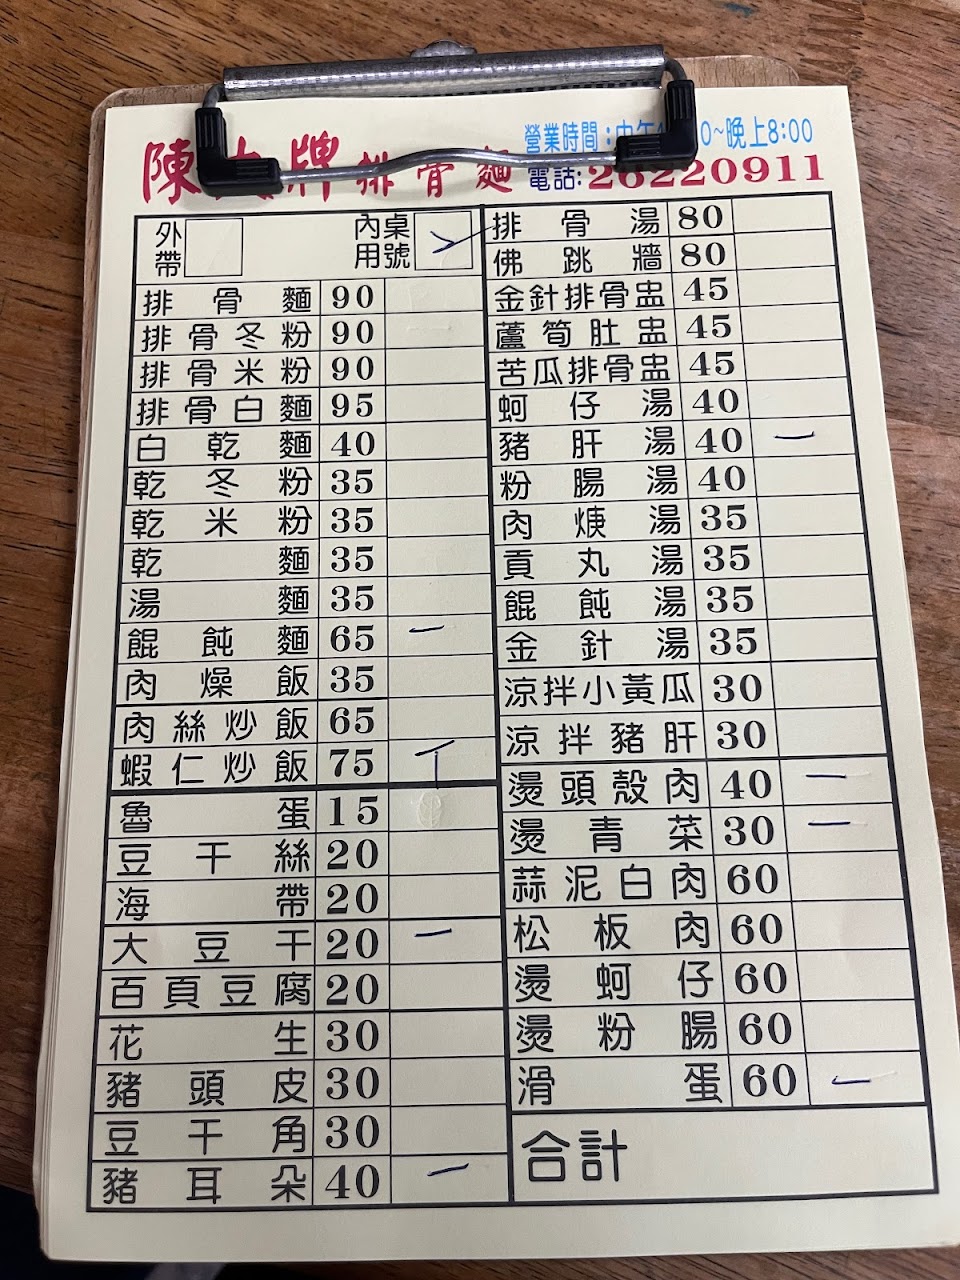 陳 牌排骨麵
營業時間:中午 0~晚上8:00
電話:26220911
外帶
內用 桌號
排骨麵 90
排骨冬粉 90
排骨米粉 90
排骨白麵 95
白乾麵 40
乾冬粉 35
乾米粉 35
乾麵 35
湯麵 35
餛飩麵 65 一
肉燥飯 35
肉絲炒飯 65
蝦仁炒飯 75 丅
魯蛋 15
豆干絲 20
海帶 20
大豆干 20 一
百頁豆腐 20
花生 30
豬頭皮 30
豆干角 30
豬耳朵 40 一
排骨湯 80
佛跳牆 80
金針排骨盅 45
蘆筍肚盅 45
苦瓜排骨盅 45
蚵仔湯 40
豬肝湯 40 一
粉腸湯 40
肉焿湯 35
貢丸湯 35
餛飩湯 35
金針湯 35
涼拌小黃瓜 30
涼拌豬肝 30
燙頭殼肉 40 一
燙青菜 30 一
蒜泥白肉 60
松板肉 60
燙蚵仔 60
燙粉腸 60
滑蛋 60 一
合計